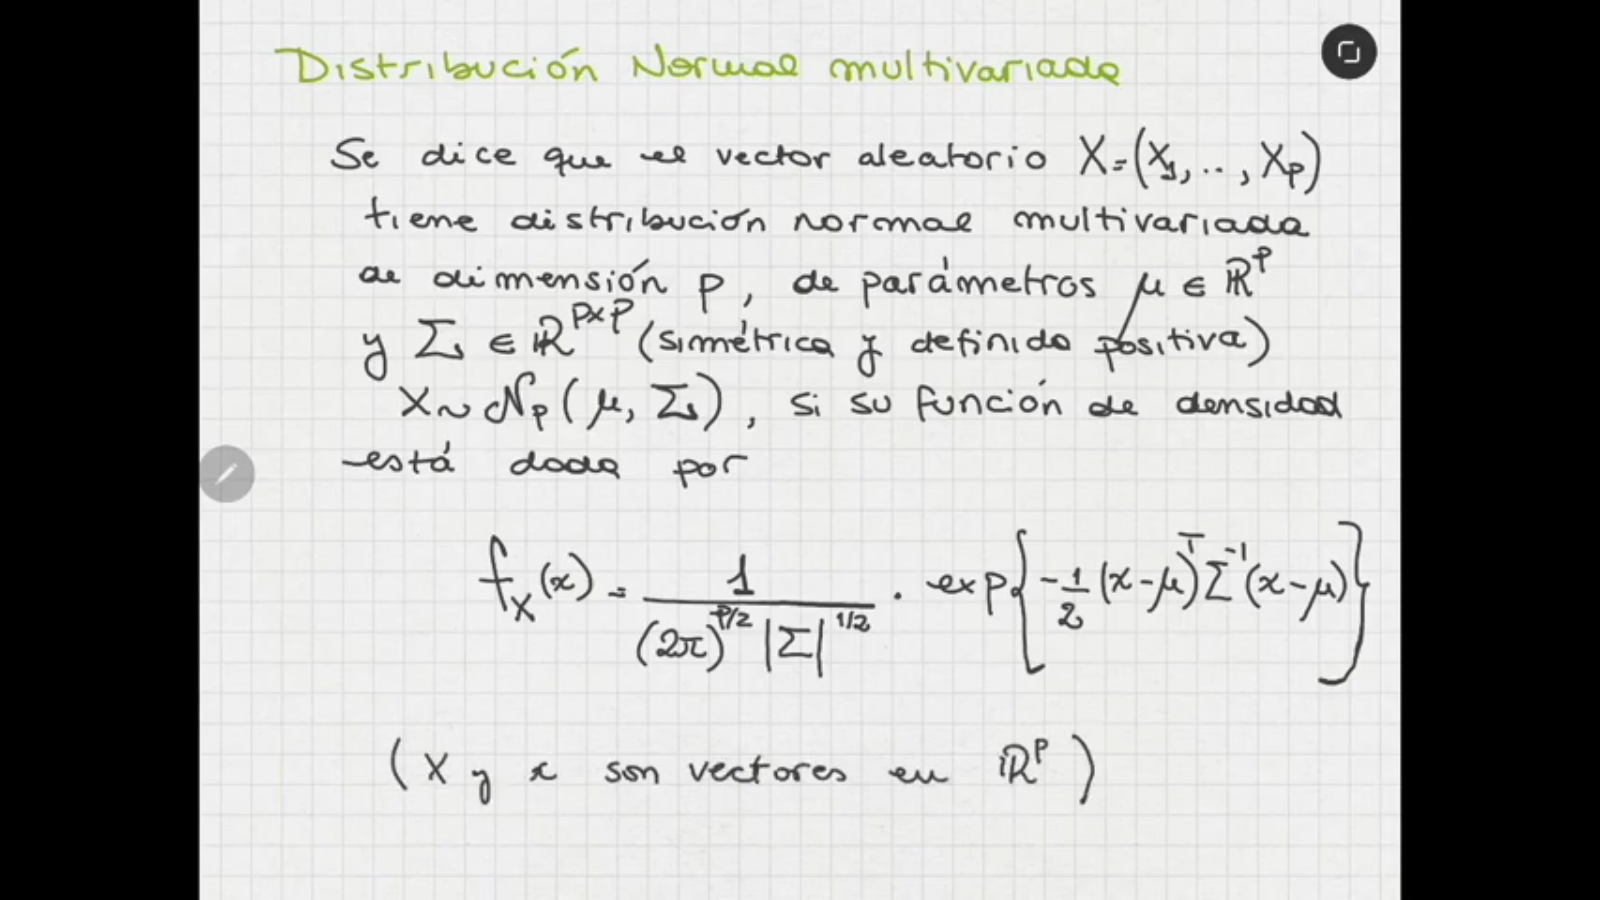 Distribución Normal multivariada
Se dice que el vector aleatorio X=(X₁,..,Xₚ)
tiene distribución normal multivariada
de dimensión p, de parámetros μ ∈ ℝᵖ
y Σ ∈ ℝᵖˣᵖ (simétrica y definida positiva)
X ~ 𝒩ₚ(μ, Σ), si su función de densidad
está dada por
f_X(x) = 1 / ((2π)^{p/2} |Σ|^{1/2}) · exp{-1/2 (x-μ)^T Σ^{-1} (x-μ)}
(X y x son vectores en ℝᵖ)